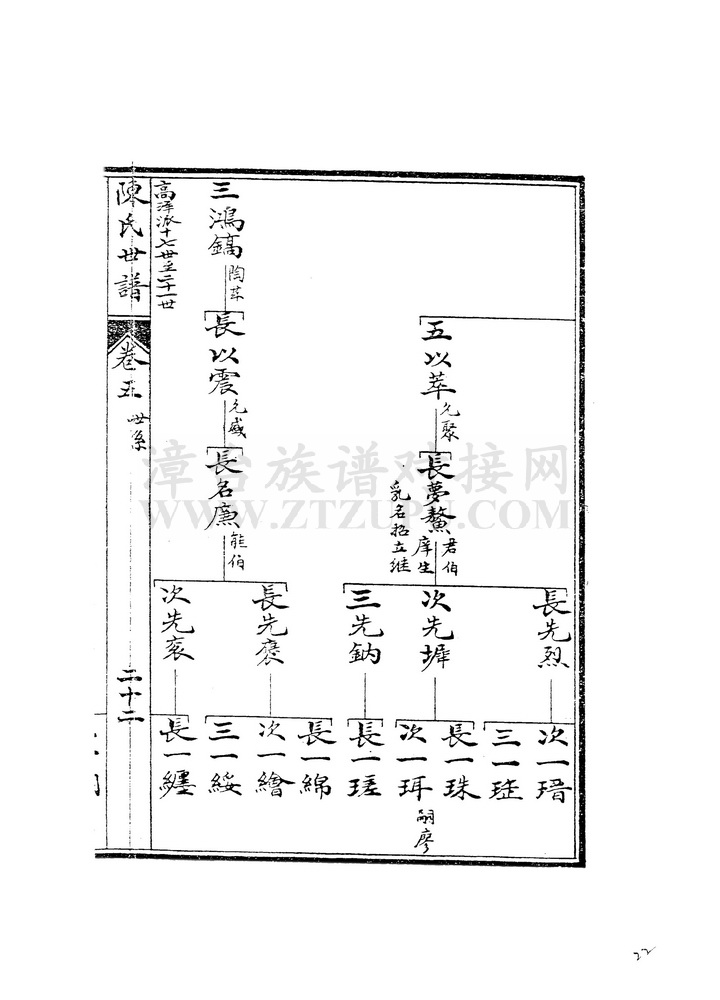 五以萃
允聚
長夢鰲
君伯
庠生
乳名招立继
長先烈
次先墀
三先鈉
次一瑨
三一琟
長一珠
次一珥
嗣廖
長一瑳
三鴻鎬
陶萃
長以震
允盛
長名廉
能伯
長先褒
次先袞
長一綿
次一繪
三一綏
長一纏
高洋派十七世至二十一世
陳氏世譜
卷五
世系
二十二
漳台族谱对接网
WWW.ZTZUPU.COM
22